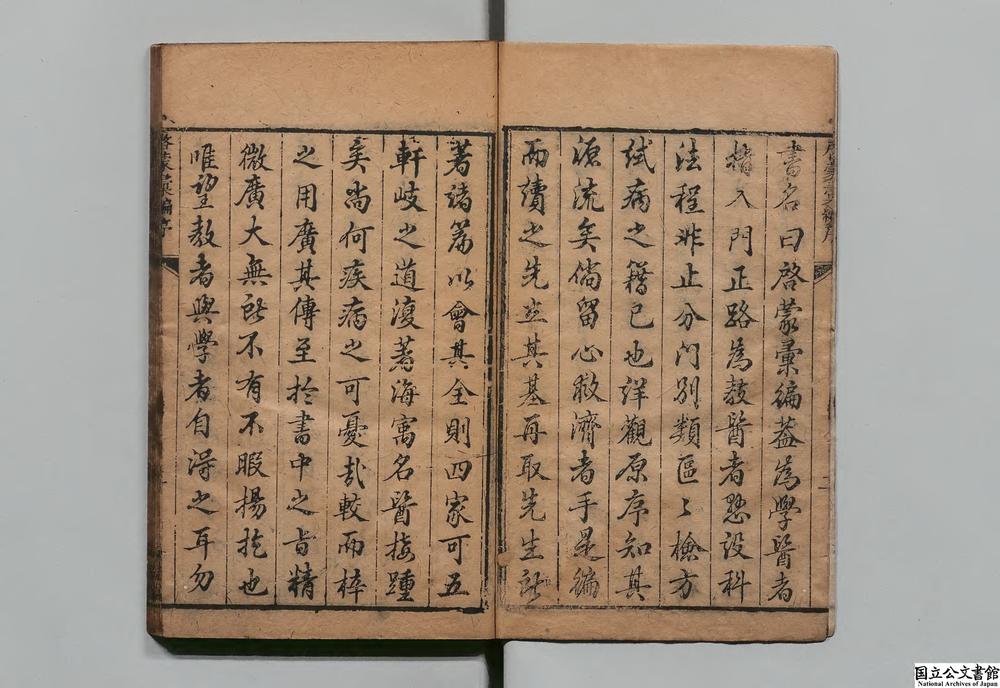 書名曰啓蒙彙編葢為學醫者
楷入門正路為教醫者懸設科
法程非止分門別類區〻檢方
試病之籍已也詳觀原序知其
源流矣倘留心救濟者手是編
而讀之先立其基再取先生所
著諸篇以會其全則四家可五
軒岐之道復著海寓名醫接踵
矣尚何疾病之可憂哉較而梓
之用廣其傳至於書中之旨精
微廣大無所不有不暇揚扢也
唯望教者與學者自淂之耳勿
啓蒙彙編序
国立公文書館
National Archives of Japan